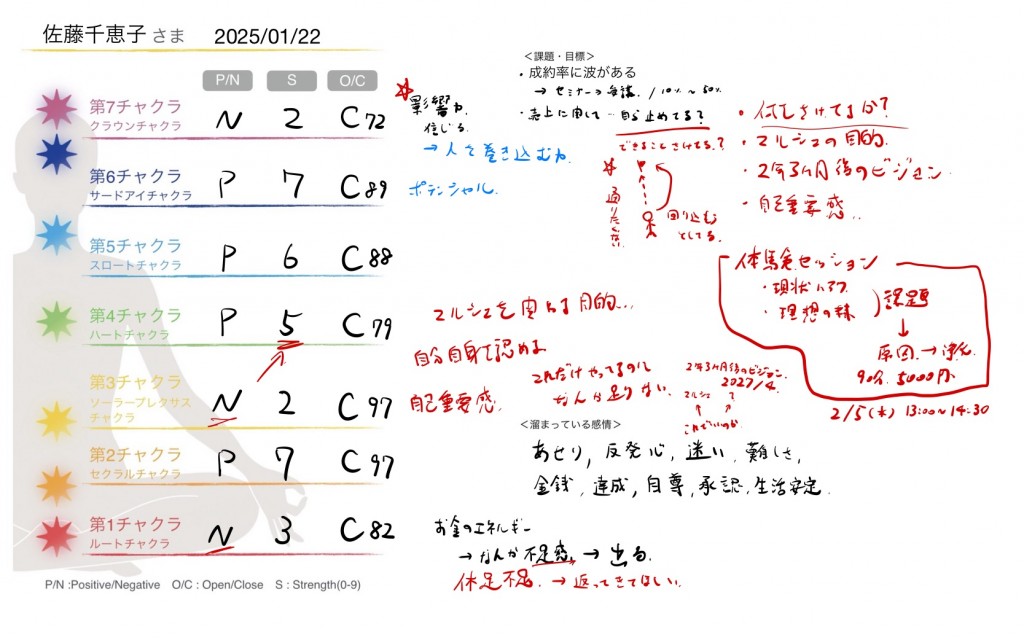 佐藤千恵子 さま 2025/01/22
P/N S O/C
第7チャクラ
クラウンチャクラ
N 2 C72
第6チャクラ
サードアイチャクラ
P 7 C89
第5チャクラ
スロートチャクラ
P 6 C88
第4チャクラ
ハートチャクラ
P 5 C79
第3チャクラ
ソーラープレクサス
チャクラ
N 2 C97
第2チャクラ
セクラルチャクラ
P 7 C97
第1チャクラ
ルートチャクラ
N 3 C82
P/N :Positive/Negative O/C : Open/Close S : Strength(0-9)
影響力
信じる
→ 人を巻き込む力
ポテンシャル
<課題・目標>
・成約率に波がある
→ セミナー→受講 / 10%～50%
・売上に関して… 自分止めてる?
できることさけてる?
回り込む
としてる
・何をさけてるか?
・マルシェの目的
・2年3ヶ月後のビジョン
・自己重要感
体験セッション
・現状
・理想の
課題
↓
原因 → 浄化
90分 5000円
2/5(水) 13:00~14:30
マルシェを 目的…
自分自身を認める
自己重要感
これだけやってるのに
なんか足りない
2年3ヶ月後のビジョン
2027/4
マルシェ ?
↑ ↑
これでいいのか
<溜まっている感情>
あせり, 反発心, 迷い, 難しさ,
金銭, 達成, 自尊, 承認, 生活安定
お金のエネルギー
→ なんか 不足感 → 出る
休足不足 → 返ってきてほしい